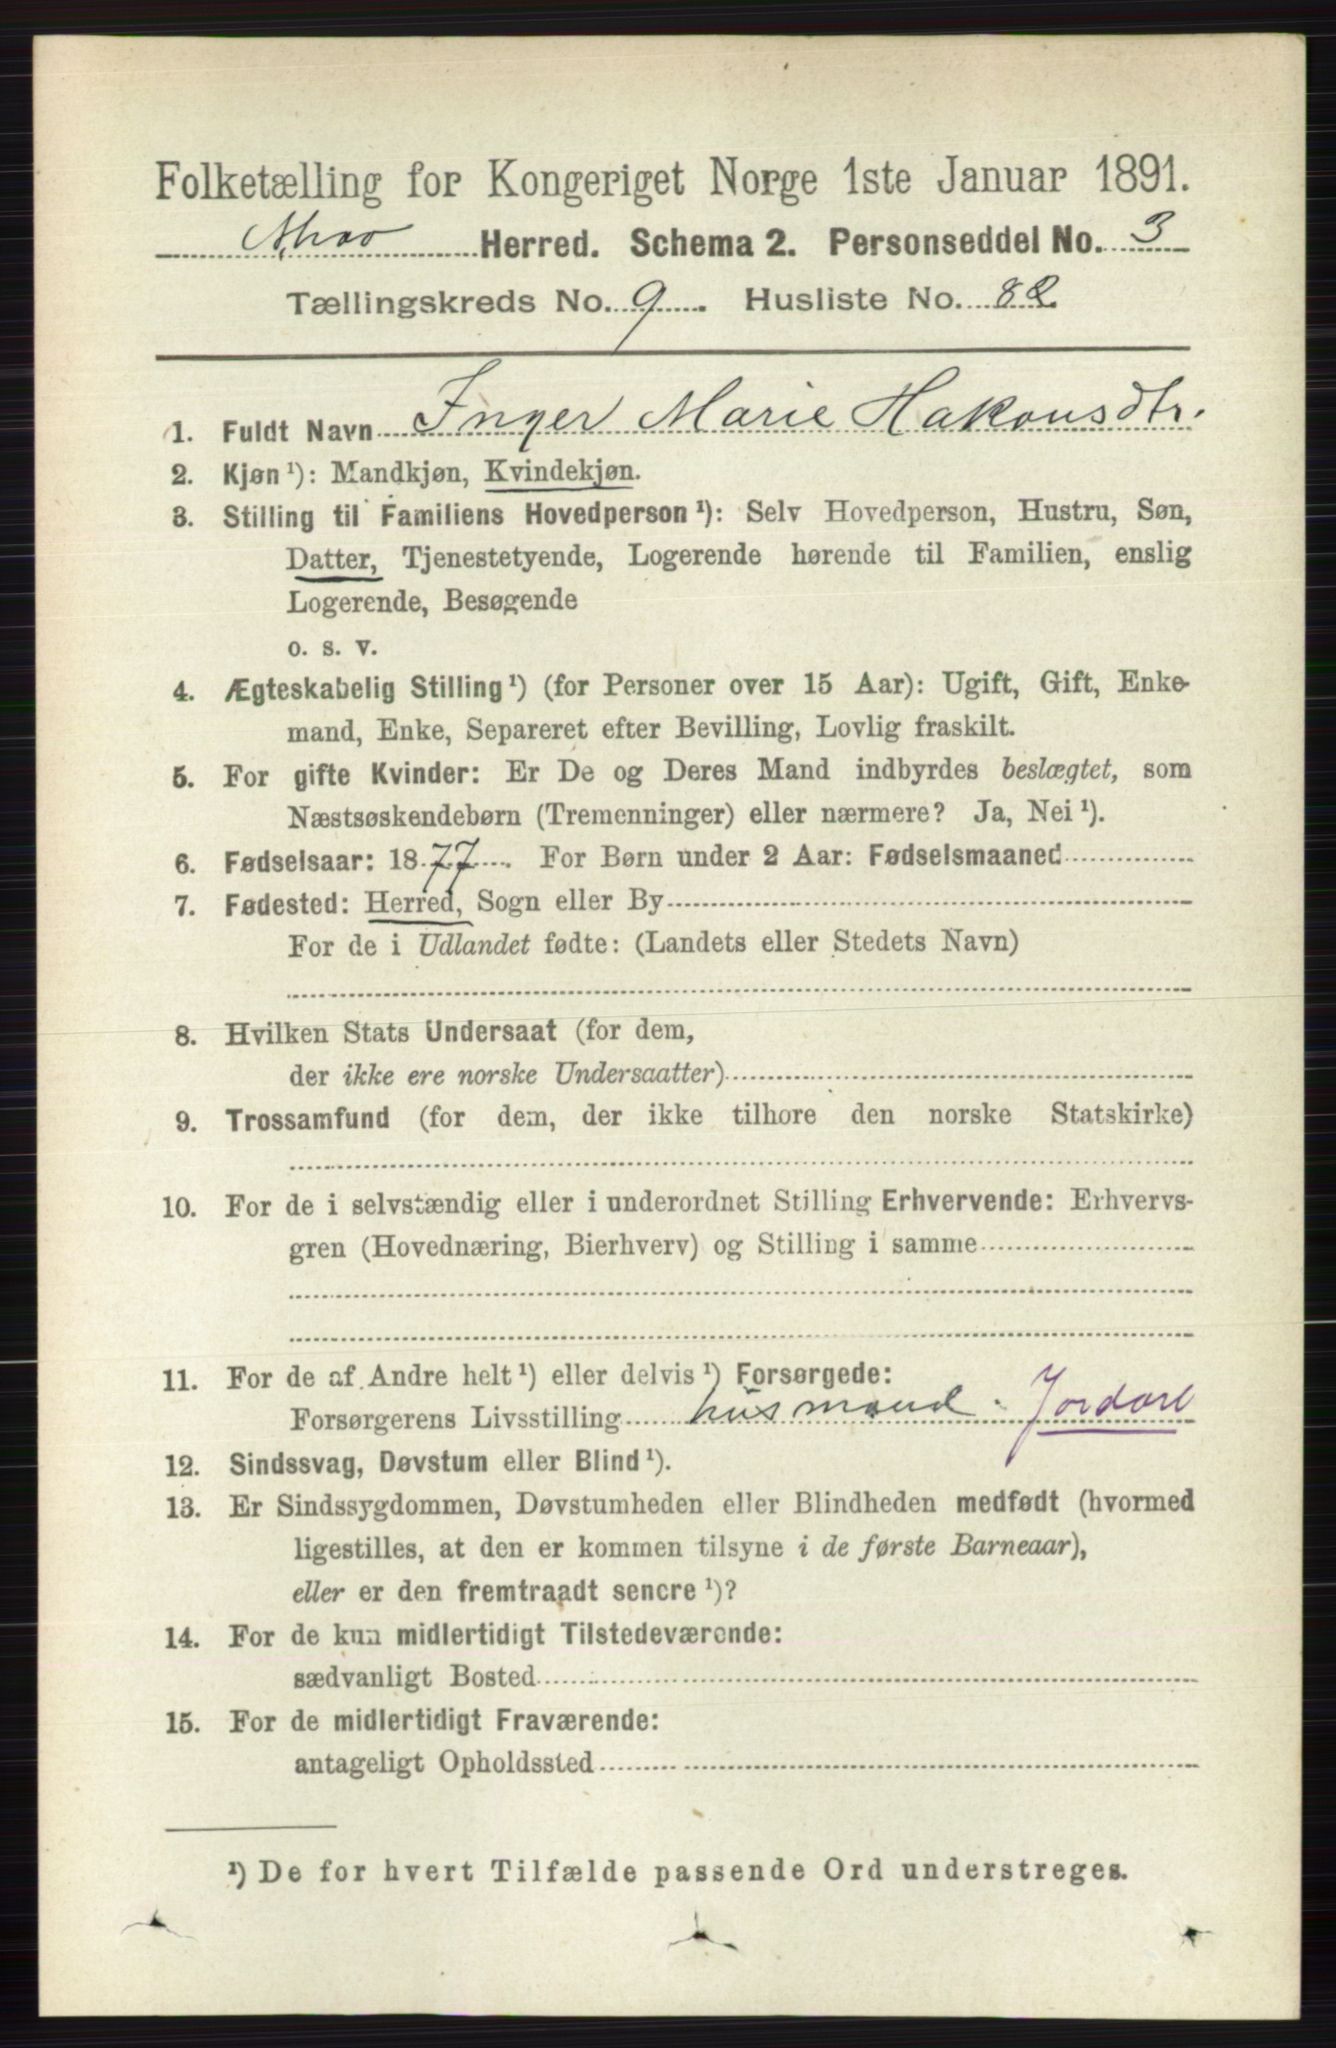 Folketælling for Kongeriget Norge 1ste Januar 1891.
Herred. Schema 2. Personseddel No. 3
Tællingskreds No. 9. Husliste No. 82.
1. Fuldt Navn Inger Marie Hakonsdtr.
2. Kjøn¹): Mandkjøn, Kvindekjøn.
3. Stilling til Familiens Hovedperson¹): Selv Hovedperson, Hustru, Søn,
Datter, Tjenestetyende, Logerende hørende til Familien, enslig
Logerende, Besøgende
o. s. v.
4. Ægteskabelig Stilling¹) (for Personer over 15 Aar): Ugift, Gift, Enke-
mand, Enke, Separeret efter Bevilling, Lovlig fraskilt.
5. For gifte Kvinder: Er De og Deres Mand indbyrdes beslægtet, som
Næstsøskendebørn (Tremenninger) eller nærmere? Ja, Nei¹).
6. Fødselsaar: 1877. For Børn under 2 Aar: Fødselsmaaned
7. Fødested: Herred, Sogn eller By
For de i Udlandet fødte: (Landets eller Stedets Navn)
8. Hvilken Stats Undersaat (for dem,
der ikke ere norske Undersaatter)
9. Trossamfund (for dem, der ikke tilhore den norske Statskirke)
10. For de i selvstændig eller i underordnet Stilling Erhvervende: Erhvervs-
gren (Hovednæring, Bierhverv) og Stilling i samme
11. For de af Andre helt¹) eller delvis¹) Forsørgede:
Forsørgerens Livsstilling husmand. Jordarb
12. Sindssvag, Døvstum eller Blind¹).
13. Er Sindssygdommen, Døvstumheden eller Blindheden medfødt (hvormed
ligestilles, at den er kommen tilsyne i de første Barneaar),
eller er den fremtraadt senere¹)?
14. For de kun midlertidigt Tilstedeværende:
sædvanligt Bosted
15. For de midlertidigt Fraværende:
antageligt Opholdssted
¹) De for hvert Tilfælde passende Ord understreges.